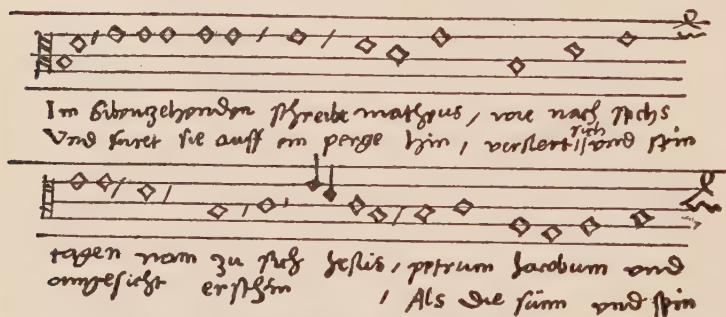 Im sibenzehenden schreibt matheus, wie nach sechs
Und furet sie auff ein perge hin, verklert sich und sein
tagen nam zu sich Jesus, petrum Jacobum und
angesicht erschin, Als die sunn und sein